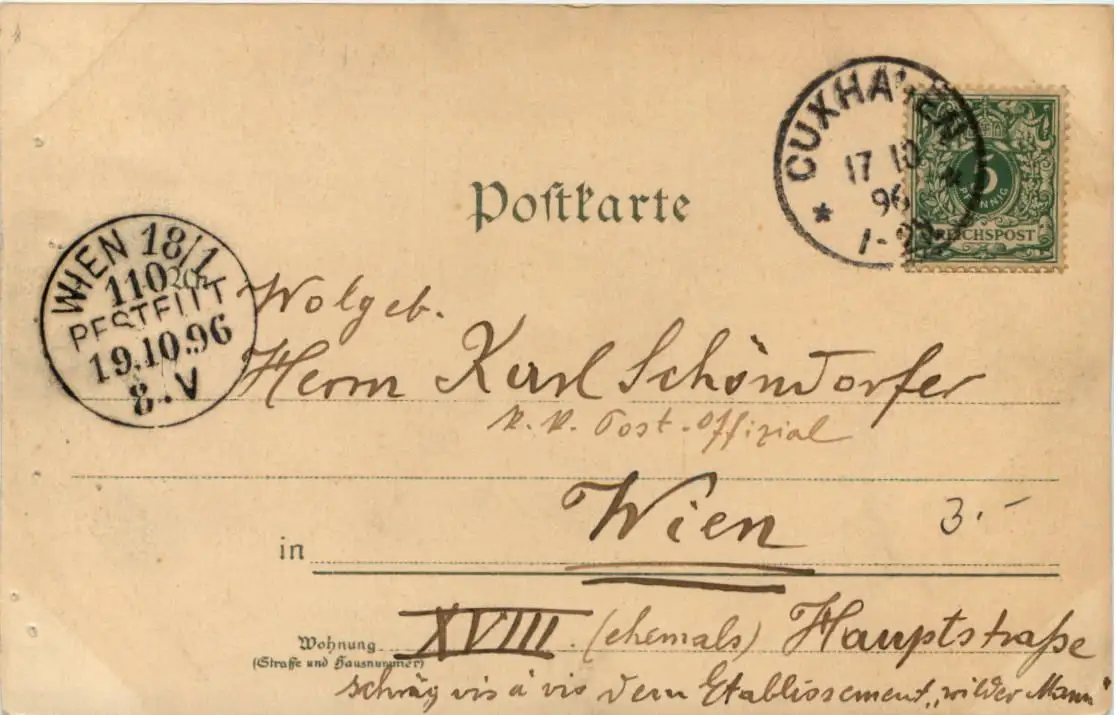 CUXHAVEN
17 10
96
1-2N
5
PFENNIG
REICHSPOST
Postkarte
WIEN 18/1
110
BESTELLT
19.10.96
8. V
An
Wolgeb.
Herrn Karl Schöndorfer
k. k. Post-Offizial
Wien
3.-
in
XVIII. (ehemals) Hauptstraße
Wohnung
(Straße und Hausnummer)
schräg vis à vis dem Etablissement „wilder Mann"